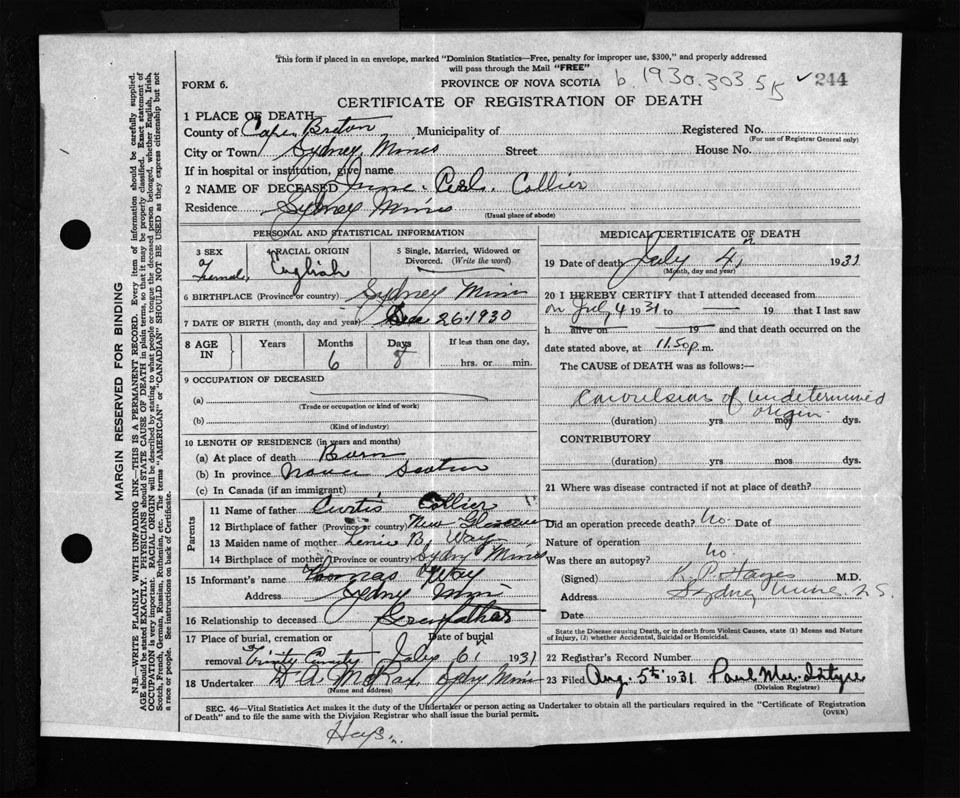 This form if placed in an envelope, marked "Dominion Statistics—Free, penalty for improper use, $300," and properly addressed
will pass through the Mail "FREE"
FORM 6.
PROVINCE OF NOVA SCOTIA b. 1930.303.515 ✓ 244
CERTIFICATE OF REGISTRATION OF DEATH
1 PLACE OF DEATH
County of Cape Breton Municipality of Registered No.
(For use of Registrar General only)
City or Town Sydney Mines Street House No.
If in hospital or institution, give name
2 NAME OF DECEASED Collier
Residence Sydney Mines
(Usual place of abode)
PERSONAL AND STATISTICAL INFORMATION
3 SEX Female
4 RACIAL ORIGIN English
5 Single, Married, Widowed or Divorced. (Write the word)
6 BIRTHPLACE (Province or country) Sydney Mines
7 DATE OF BIRTH (month, day and year) Dec 26. 1930
8 AGE IN Years Months Days If less than one day,
6 8 hrs. or min.
9 OCCUPATION OF DECEASED
(a)
(Trade or occupation or kind of work)
(b)
(Kind of industry)
10 LENGTH OF RESIDENCE (in years and months)
(a) At place of death Born
(b) In province Nova Scotia
(c) In Canada (if an immigrant)
Parents
11 Name of father Curtis Collier
12 Birthplace of father (Province or country) New Glasgow
13 Maiden name of mother B. Way
14 Birthplace of mother (Province or country) Sydney Mines
15 Informant's name Thomas Way
Address Sydney Mines
16 Relationship to deceased Grandfather
17 Place of burial, cremation or Date of burial
removal Trinity July 6 1931
18 Undertaker D. A. McKay Sydney Mines
(Name and address)
MEDICAL CERTIFICATE OF DEATH
19 Date of death July 4 1931
(Month, day and year)
20 I HEREBY CERTIFY that I attended deceased from
on July 4 1931 to 19 that I last saw
h alive on 19 and that death occurred on the
date stated above, at 11.50 p.m.
The CAUSE of DEATH was as follows:—
Convulsions of undetermined
origin
(duration) yrs mos dys.
CONTRIBUTORY
(duration) yrs mos dys.
21 Where was disease contracted if not at place of death?
Did an operation precede death? No. Date of
Nature of operation
Was there an autopsy? No.
(Signed) K. P. Hayes M.D.
Address Sydney Mines N.S.
Date
State the Disease causing Death, or in death from Violent Causes, state (1) Means and Nature
of Injury, (2) whether Accidental, Suicidal or Homicidal.
22 Registrar's Record Number
23 Filed Aug. 5th 1931 Paul
(Division Registrar)
SEC. 46—Vital Statistics Act makes it the duty of the Undertaker or person acting as Undertaker to obtain all the particulars required in the "Certificate of Registration
of Death" and to file the same with the Division Registrar who shall issue the burial permit.
(OVER)
MARGIN RESERVED FOR BINDING
N.B.—WRITE PLAINLY WITH UNFADING INK—THIS IS A PERMANENT RECORD. Every item of information should be carefully supplied.
AGE should be stated EXACTLY. PHYSICIANS should STATE CAUSE OF DEATH in plain terms, so that it may be properly classified. Exact statement of
OCCUPATION is very important. RACIAL ORIGIN will be described by stating to what people or tongue the deceased person belonged, whether English, Irish,
Scotch, French, German, Russian, Ruthenian, etc. The terms "AMERICAN" or "CANADIAN" SHOULD NOT BE USED as they express citizenship but not
a race or people. See instructions on back of Certificate.